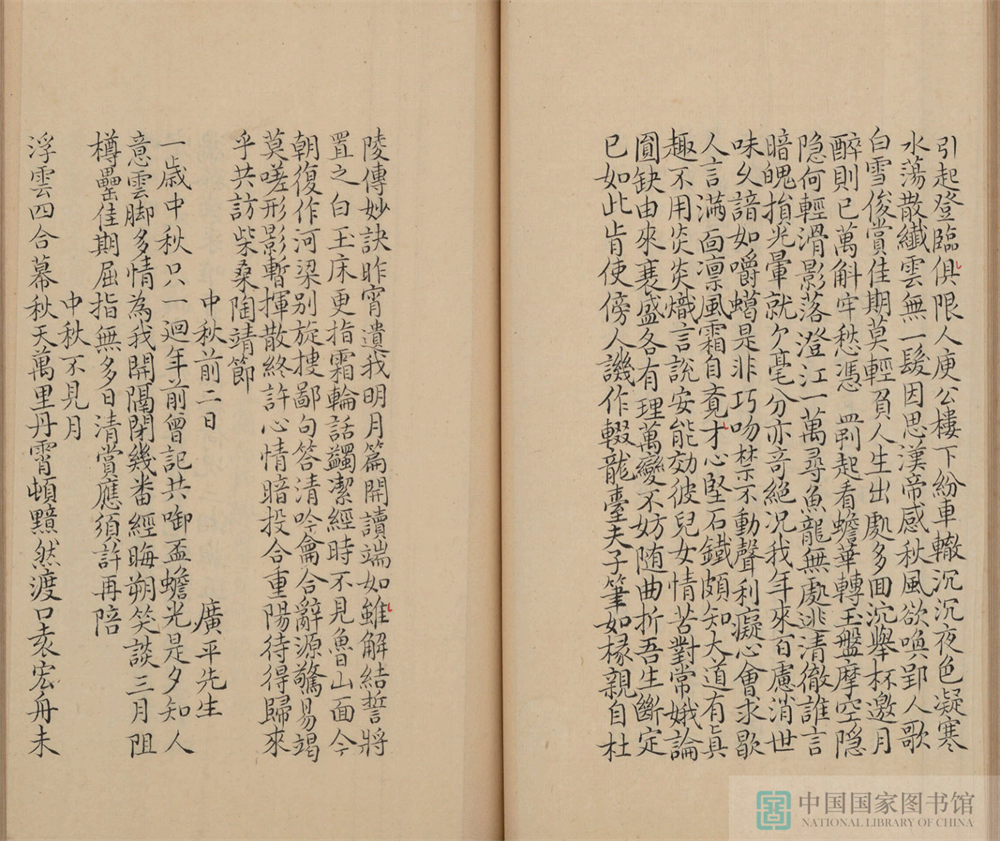 引起登臨俱限人庾公樓下紛車轍沉沉夜色凝寒
水蕩散纖雲無一髮因思漢帝感秋風欲喚郢人歌
白雪俊賞佳期莫輕負人生出處多囬沉舉杯邀月
醉則已萬斛牢愁憑一罰起看蟾華轉玉盤摩空隱
隐何輕滑影落澄江一萬尋魚龍無處逃清徹誰言
暗魄損光暈就欠毫分亦竒絕况我年來百慮消世
味久諳如嚼蠟是非巧吻禁不動聲利癡心會求歇
人言滿面凛風霜自覔才心堅石鐵頗知大道有真
趣不用炎炎熾言說安能効彼兒女情苦對常娥論
圎缺由來衰盛各有理萬變不妨随曲折吾生斷定
已如此肯使傍人譏作輟龍臺夫子筆如椽親自杜
陵傳妙訣昨宵遺我明月篇開讀端如雖解結誓將
置之白玉床更指霜輪話蠲潔經時不見魯山面今
朝復作河梁别旋摟鄙句答清吟龠合辭源驚易竭
莫嗟形影暫揮散終許心情暗投合重陽待得歸來
乎共訪柴桑陶靖節
中秋前二日　廣平先生
一歲中秋只一迴年前曾記共啣盃蟾光是夕知人
意雲脚多情為我開隔閉幾畨經晦朔笑談三月阻
樽罍佳期屈指無多日清賞應須許再陪
中秋不見月
浮雲四合幕秋天萬里丹霄頓黯然渡口袁宏舟未
中国国家图书馆
NATIONAL LIBRARY OF CHINA